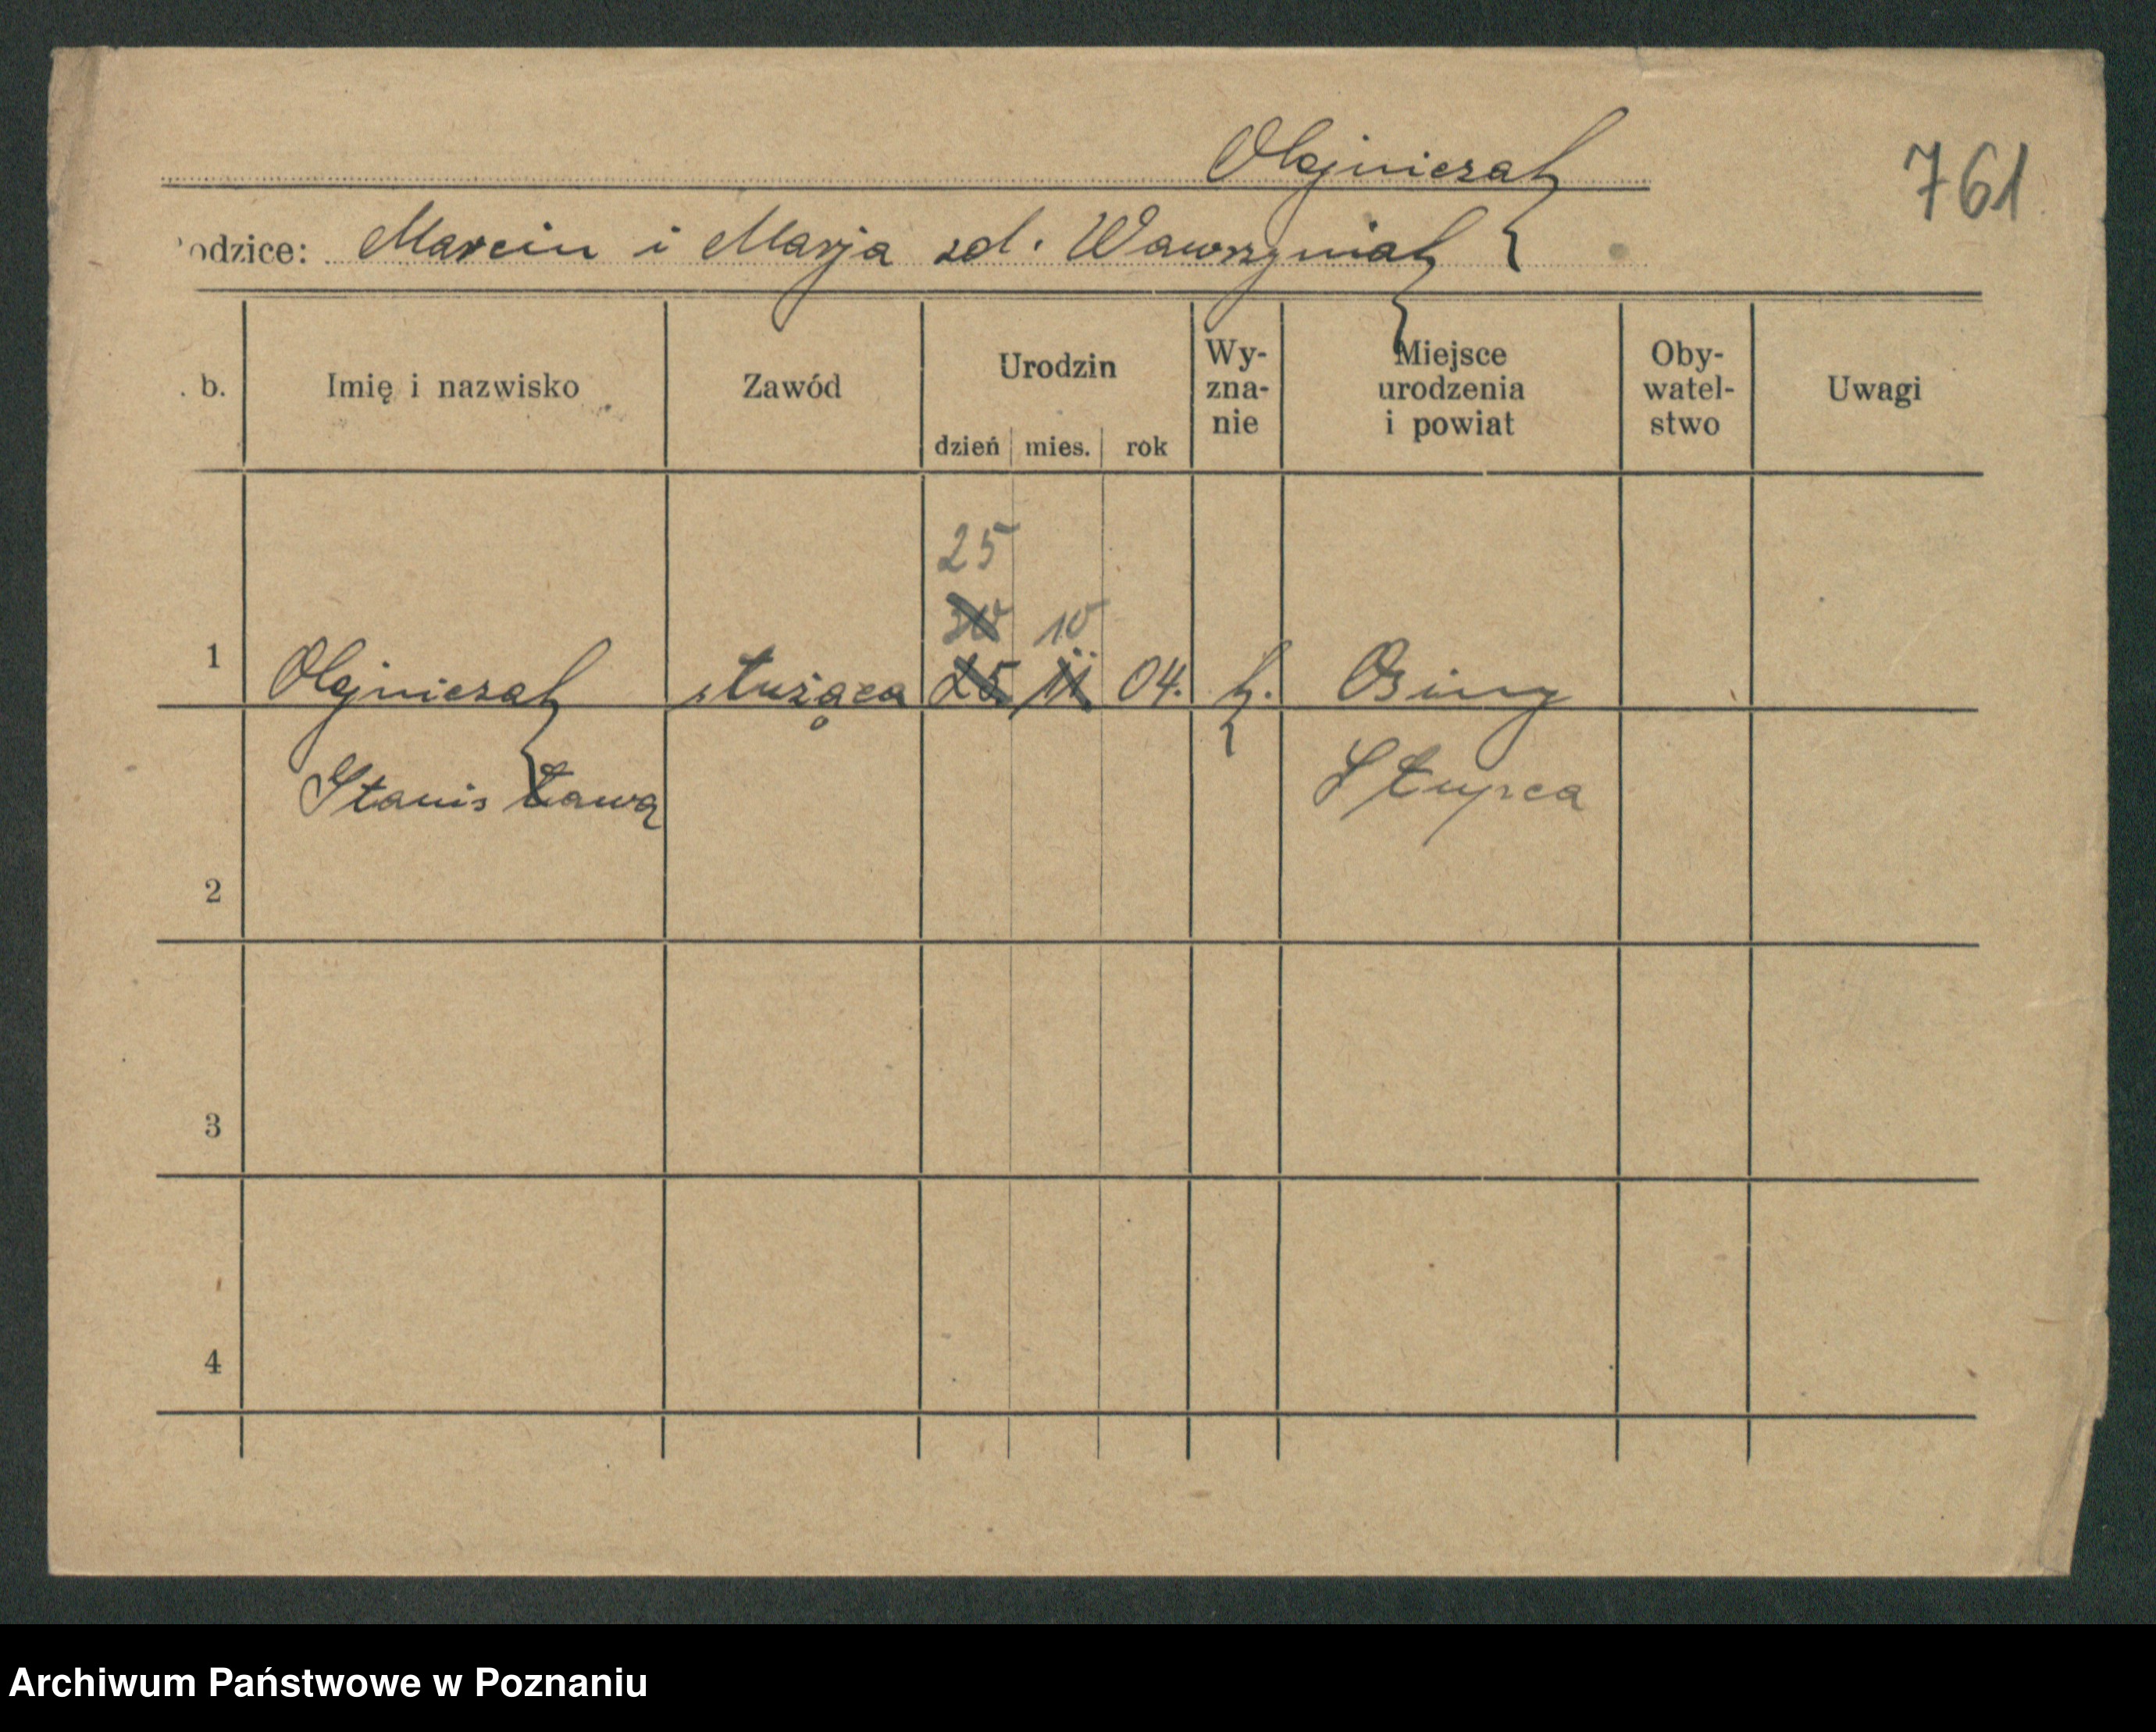 Olejniczak
761
odzice: Marcin i Marja zd. Wawrzyniak
. b. Imię i nazwisko Zawód Urodzin dzień mies. rok Wy-zna-nie Miejsce urodzenia i powiat Oby-watel-stwo Uwagi
25
30 10
1 Olejniczak służąca 25 11 04. k. Osiny
Stanisława Słupca
2
3
4
Archiwum Państwowe w Poznaniu